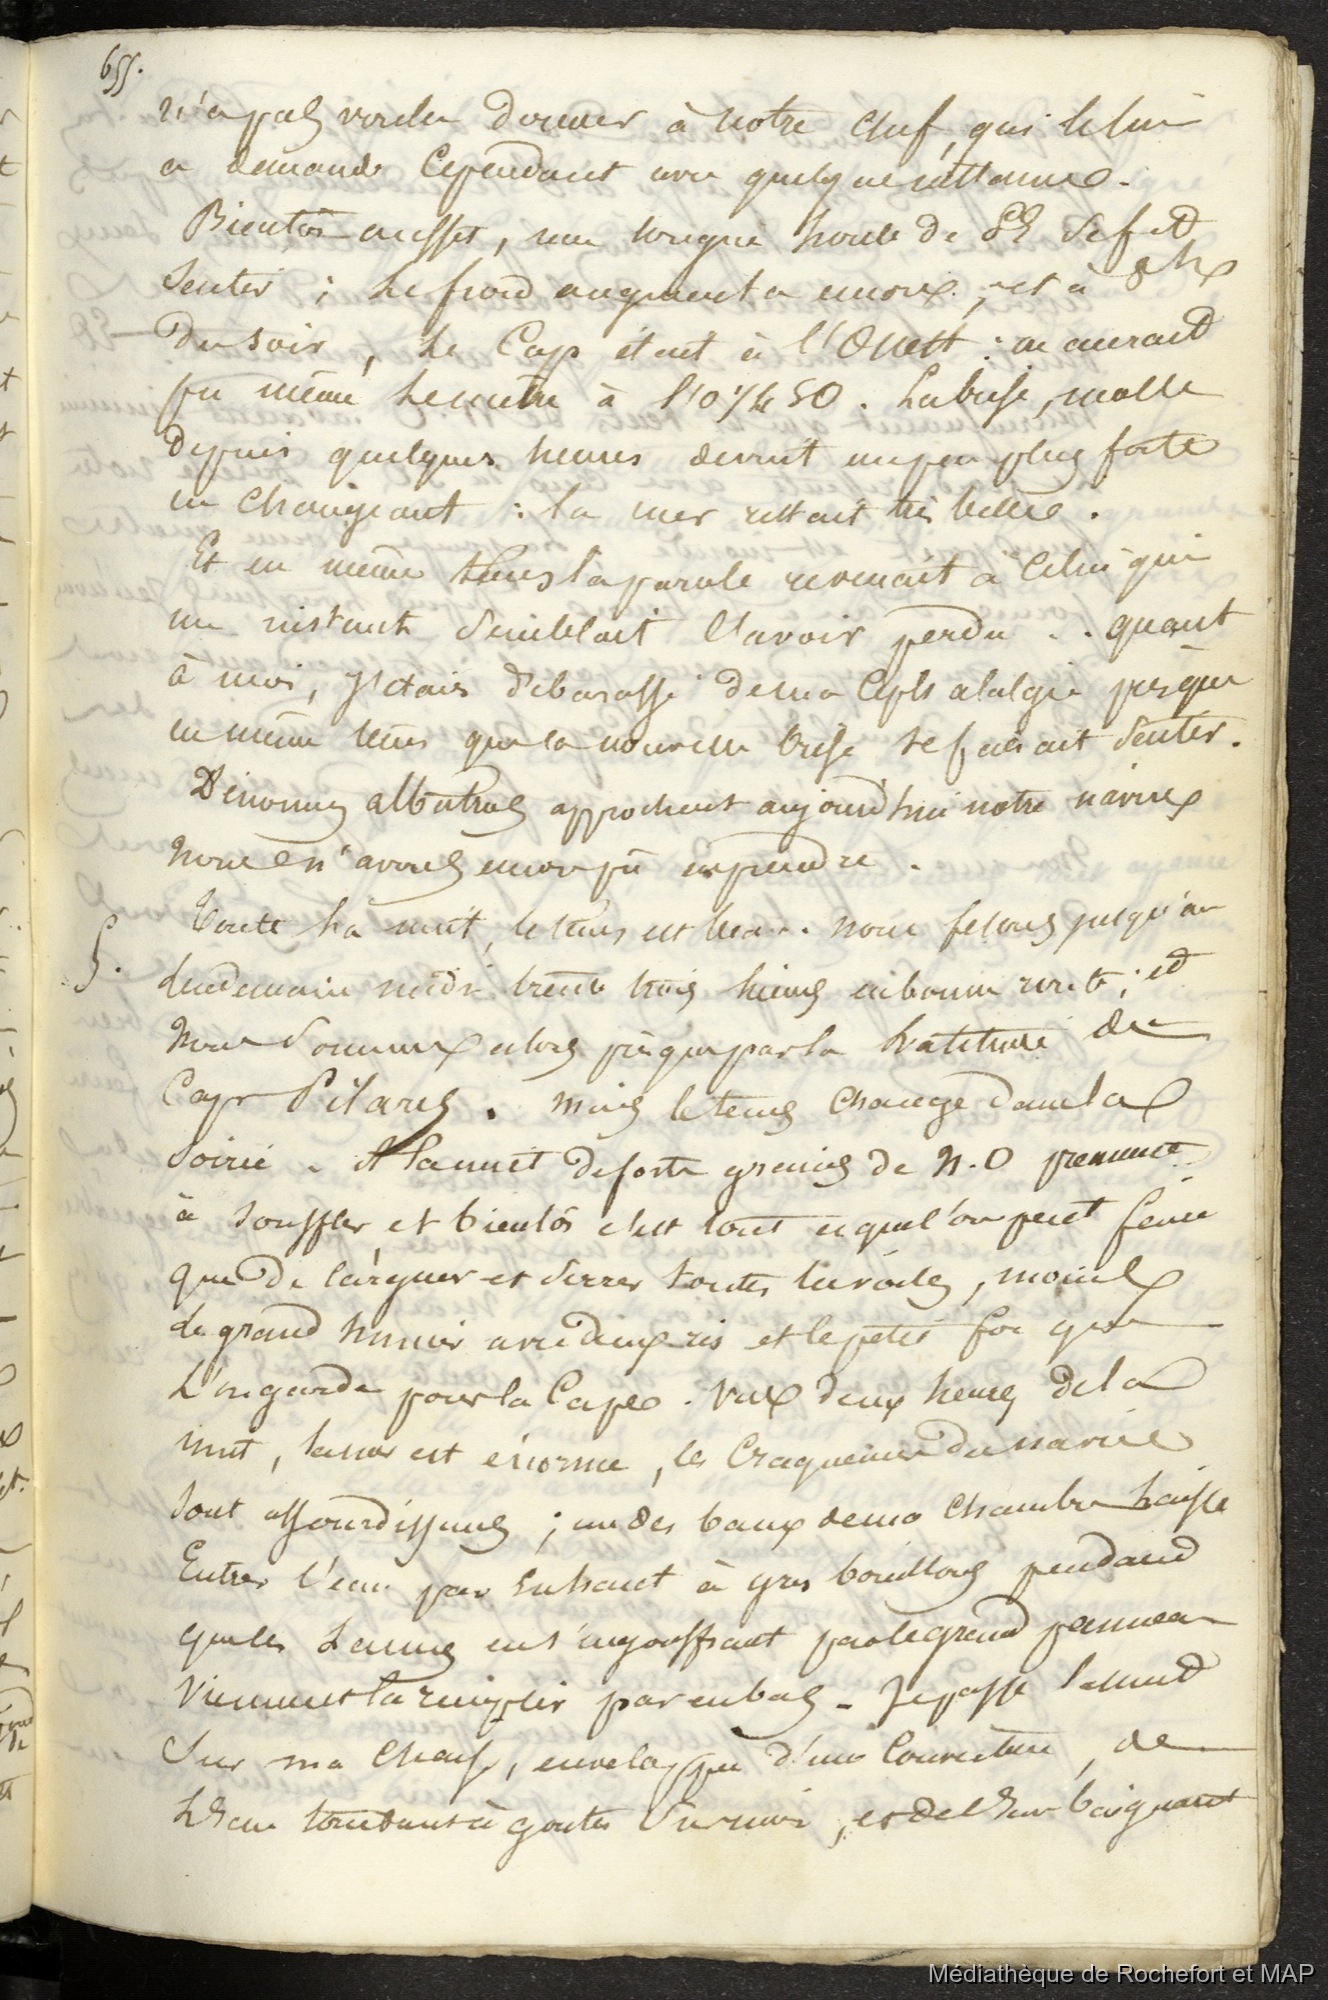 655.
n'a pas voulu donner à notre chef, qui le lui
a demandé cependant avec quelque insistance.
Bientôt en effet, une longue houle de SE se fit
sentir ; le froid augmenta encore ; et à 8 h
du soir, le Cap était à l'Ouest : on aurait
pu même le mettre à l'O 1/4 SO. La brise, molle
depuis quelques heures devint un peu plus forte
en changeant : la mer restait très belle.
Et en même tems la parole revenait à celui qui
un instant semblait l'avoir perdu .. quant
à moi, j'étais débarassé de ma Céphalalgie presque
en même tems que la nouvelle brise se faisait sentir.
D'énormes albatros approchent aujourd'hui notre navire
nous n'avons encore pû en prendre.
§. Toute la nuit, le tems est beau. nous filons jusqu'au
lendemain midi trente trois lieues en bonne route ; et
nous sommes alors presque par la latitude du
Cap Pilares. Mais le tems change dans la
soirée. A la nuit de forts grains de N.O prennent
à souffler et bientôt c'est tout ce que l'on peut faire
que de larguer et serrer toutes les voiles, moins
le grand hunier avec deux ris et le petit foc que
l'on garde pour la Cape. Vers deux heures de la
nuit, la mer est énorme, les Craquemens du navire
sont assourdissans ; un des baux de ma chambre laisse
Entrer l'eau par en haut à gros bouillons pendant
que les lames en s'engouffrant par le grand panneau
viennent la remplir par en bas. Je passe la nuit
sur ma chaise, enveloppé d'une Couverture, de
l'Eau tombant à goutes sur moi, et de l'Eau baignant
Médiathèque de Rochefort et MAP